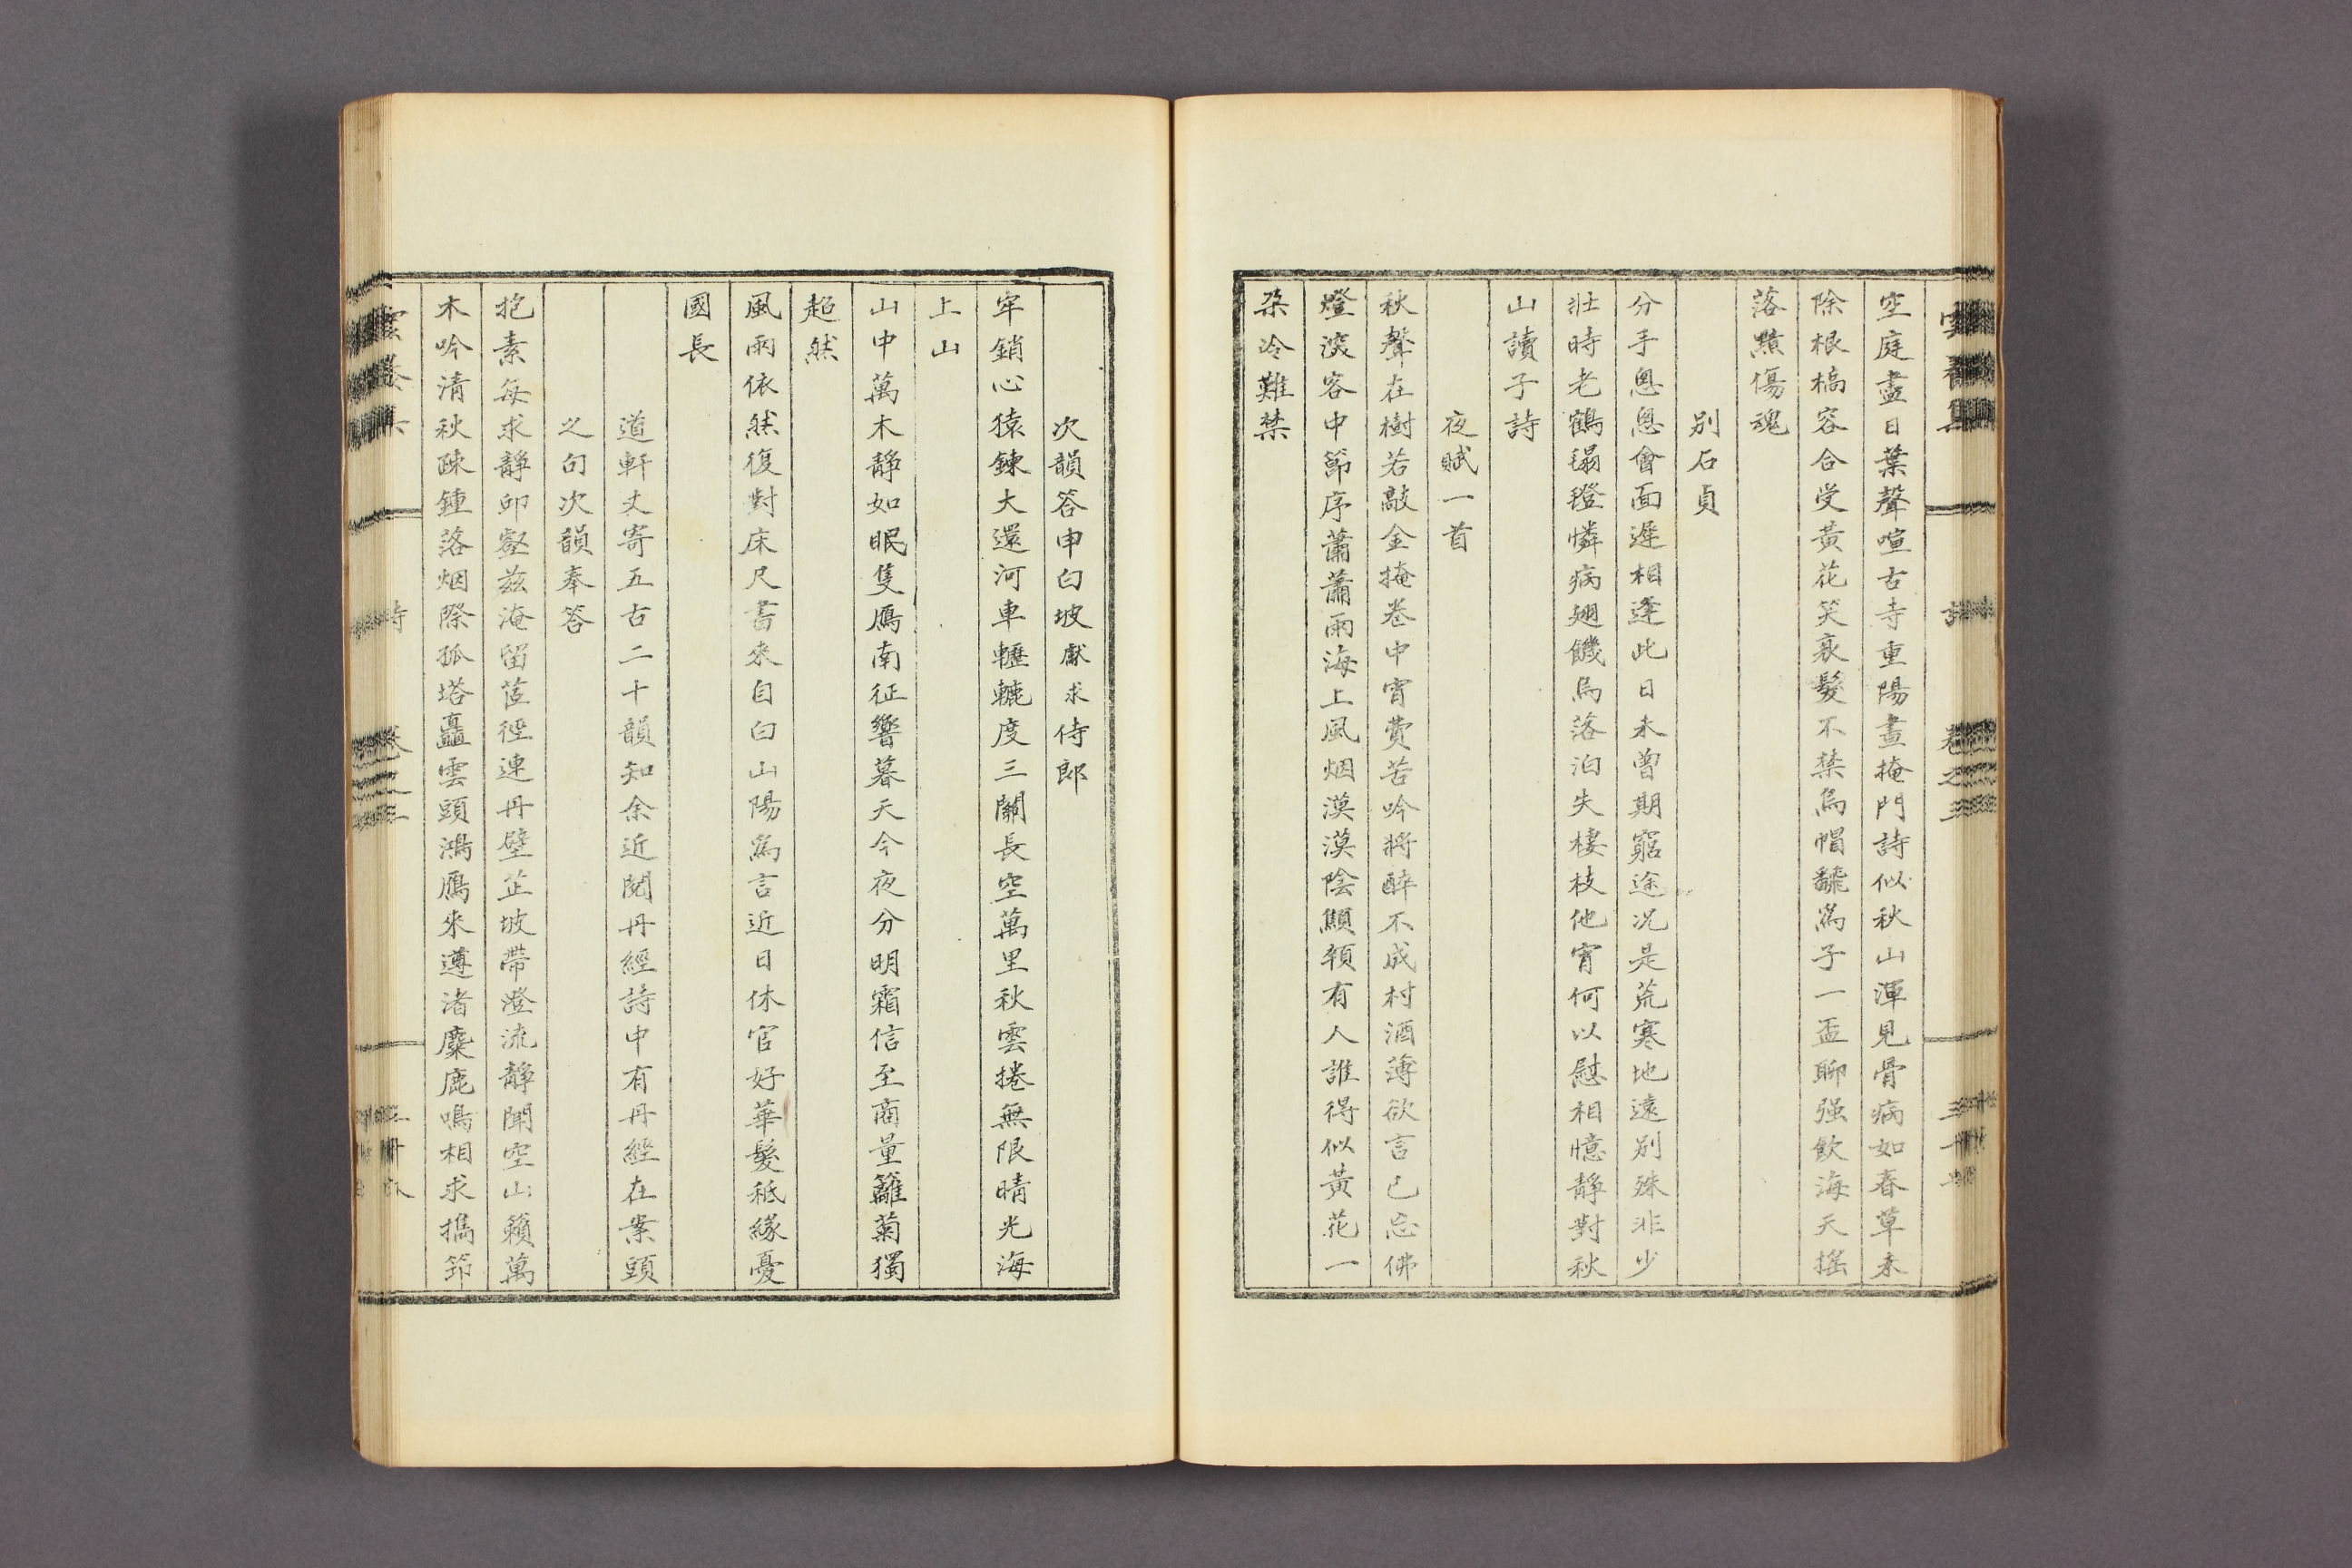 空庭盡日葉聲喧古寺重陽晝掩門詩似秋山渾見骨病如春草未
除根槁容合受黃花笑衰髮不禁烏帽飜爲子一盃聊强飮海天搖
落黯傷魂
別石貞
分手悤悤會面遲相逢此日未曾期窮途况是荒寒地遠別殊非少
壯時老鶴䎘䎖憐病翅饑烏落泊失棲枝他宵何以慰相憶靜對秋
山讀子詩
夜賦一首
秋聲在樹若敲金掩卷中宵費苦吟將醉不成村酒薄欲言已忘佛
燈淡客中節序蕭蕭雨海上風烟漠漠陰顦顇有人誰得似黃花一
朶冷難禁
次韻答申白坡獻求侍郎
牢鎖心猿鍊大還河車轣轆度三關長空萬里秋雲捲無限晴光海
上山
山中萬木靜如眠隻鴈南征響暮天今夜分明霜信至商量籬菊獨
超然
風雨依然復對床尺書來自白山陽爲言近日休官好華髮秪緣憂
國長
道軒丈寄五古二十韻知余近閱丹經詩中有丹經在案頭
之句次韻奉答
抱素每求靜卽壑玆淹留茝徑連丹壁芷坡帶澄流靜聞空山籟萬
木吟清秋疎鍾落烟際孤塔矗雲頭鴻鴈來遵渚麋鹿鳴相求擕筇